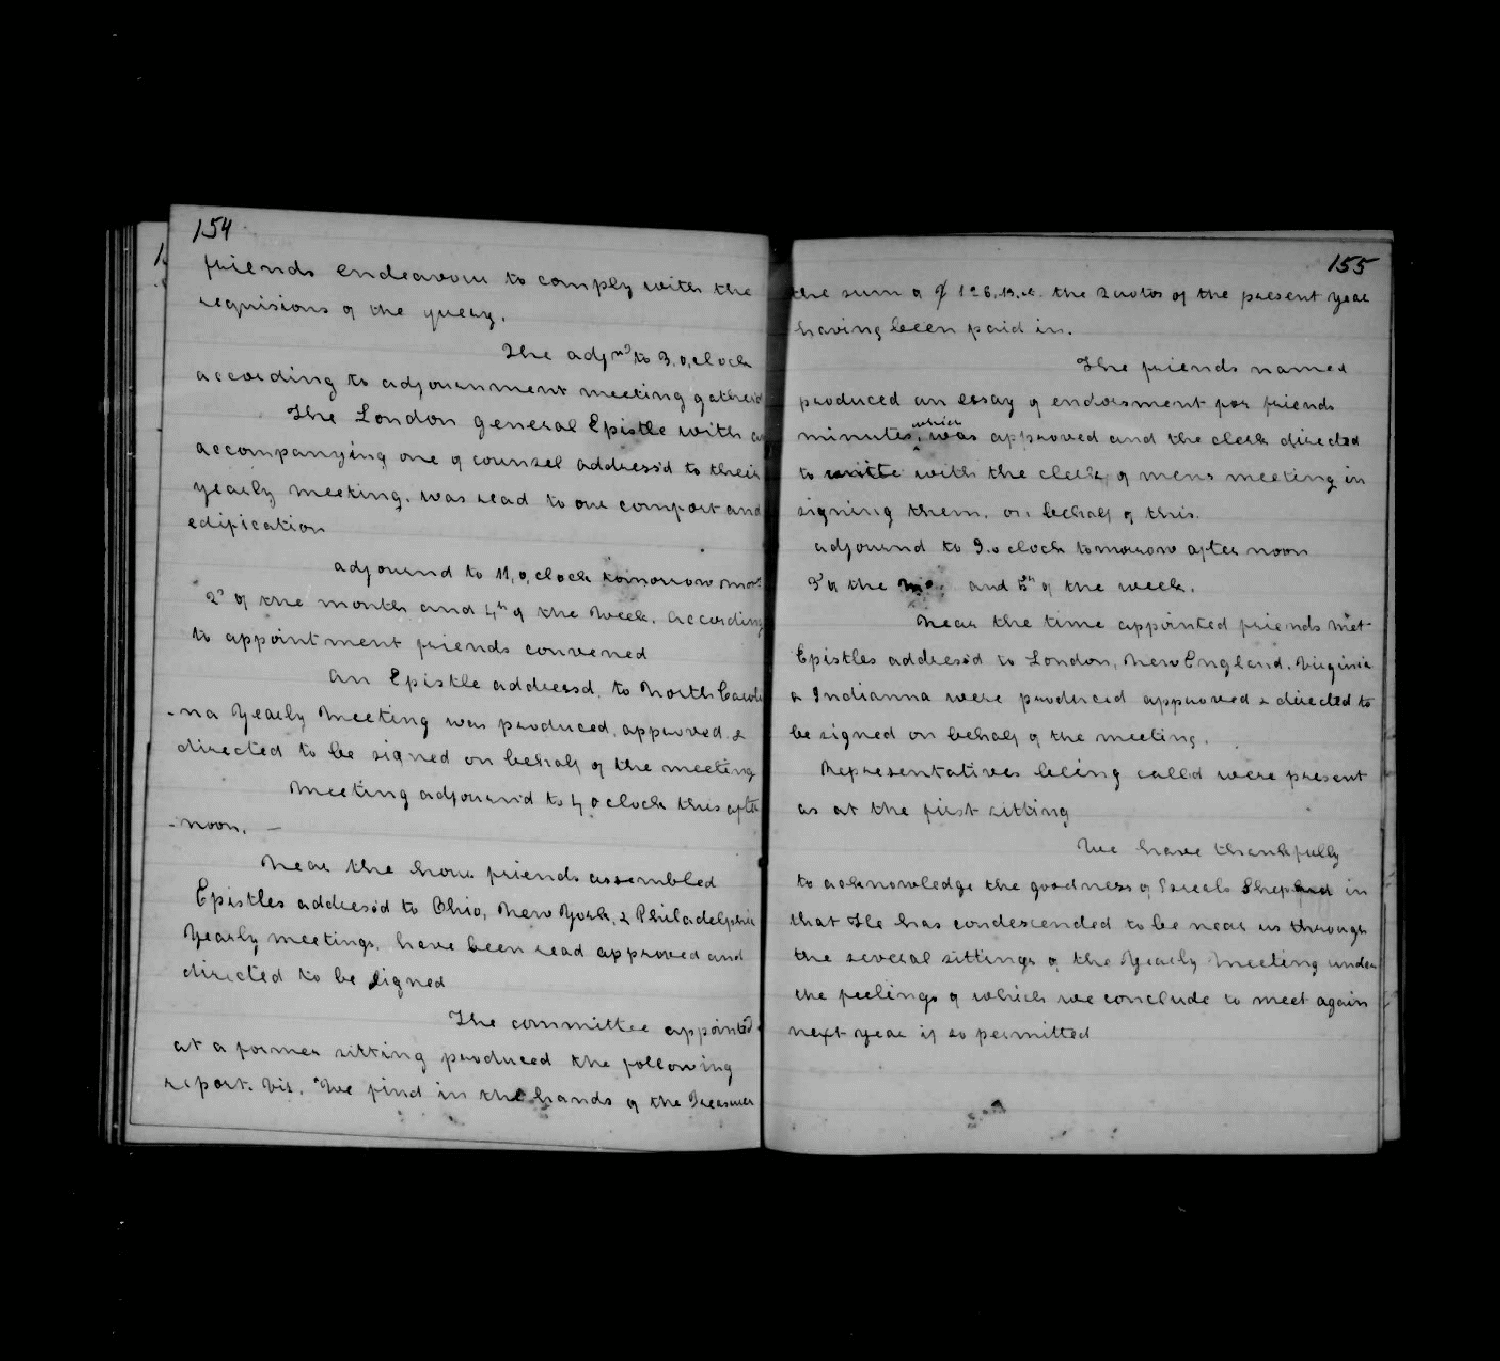 154
friends endeavour to comply with the
requisions of the query.
The adjm^t to 3, o,clock
according to adjournment meeting gather'd
The London general Epistle with an
accompanying one of counsel address'd to their
yearly meeting, was read to our comfort and
edification
adjournd to 11, o,clock tomorrow mor^n
2^d of the month and 4^th of the Week. According
to appointment friends convened
An Epistle addressd, to North Caroli
-na Yearly Meeting was produced, approved &
directed to be signed on behalf of the meeting
Meeting adjournd to 4 o clock this after
-noon. —
Near the hour friends assembled
Epistles address'd to Ohio, New York, & Philadelphia
Yearly meetings, have been read approved and
directed to be signed
The committee appointed
at a former sitting produced the following
report. Vis. "We find in the hands of the Treasurer
155
the sum of the quotas of the present year
having been paid in.
The friends named
produced an essay of endorsment for friends
which
minutes, was approved and the clerk directed
to unite with the clerk of mens meeting in
signing them, on behalf of this
adjournd to 3.o clock tomorow after noon
3^d of the mo. and 5^th of the week.
Near the time appointed friends met
Epistles address'd to London, New England, Virginia
& Indianna were produced approved & directed to
be signed on behalf of the meeting.
Representatives being calld were present
as at the first sitting
We have thankfully
to acknowledge the goodness of Isreals Shepherd in
that He has condescended to be near us through
the several sittings of the Yearly Meeting under
the feelings of which we conclude to meet again
next year if so permitted